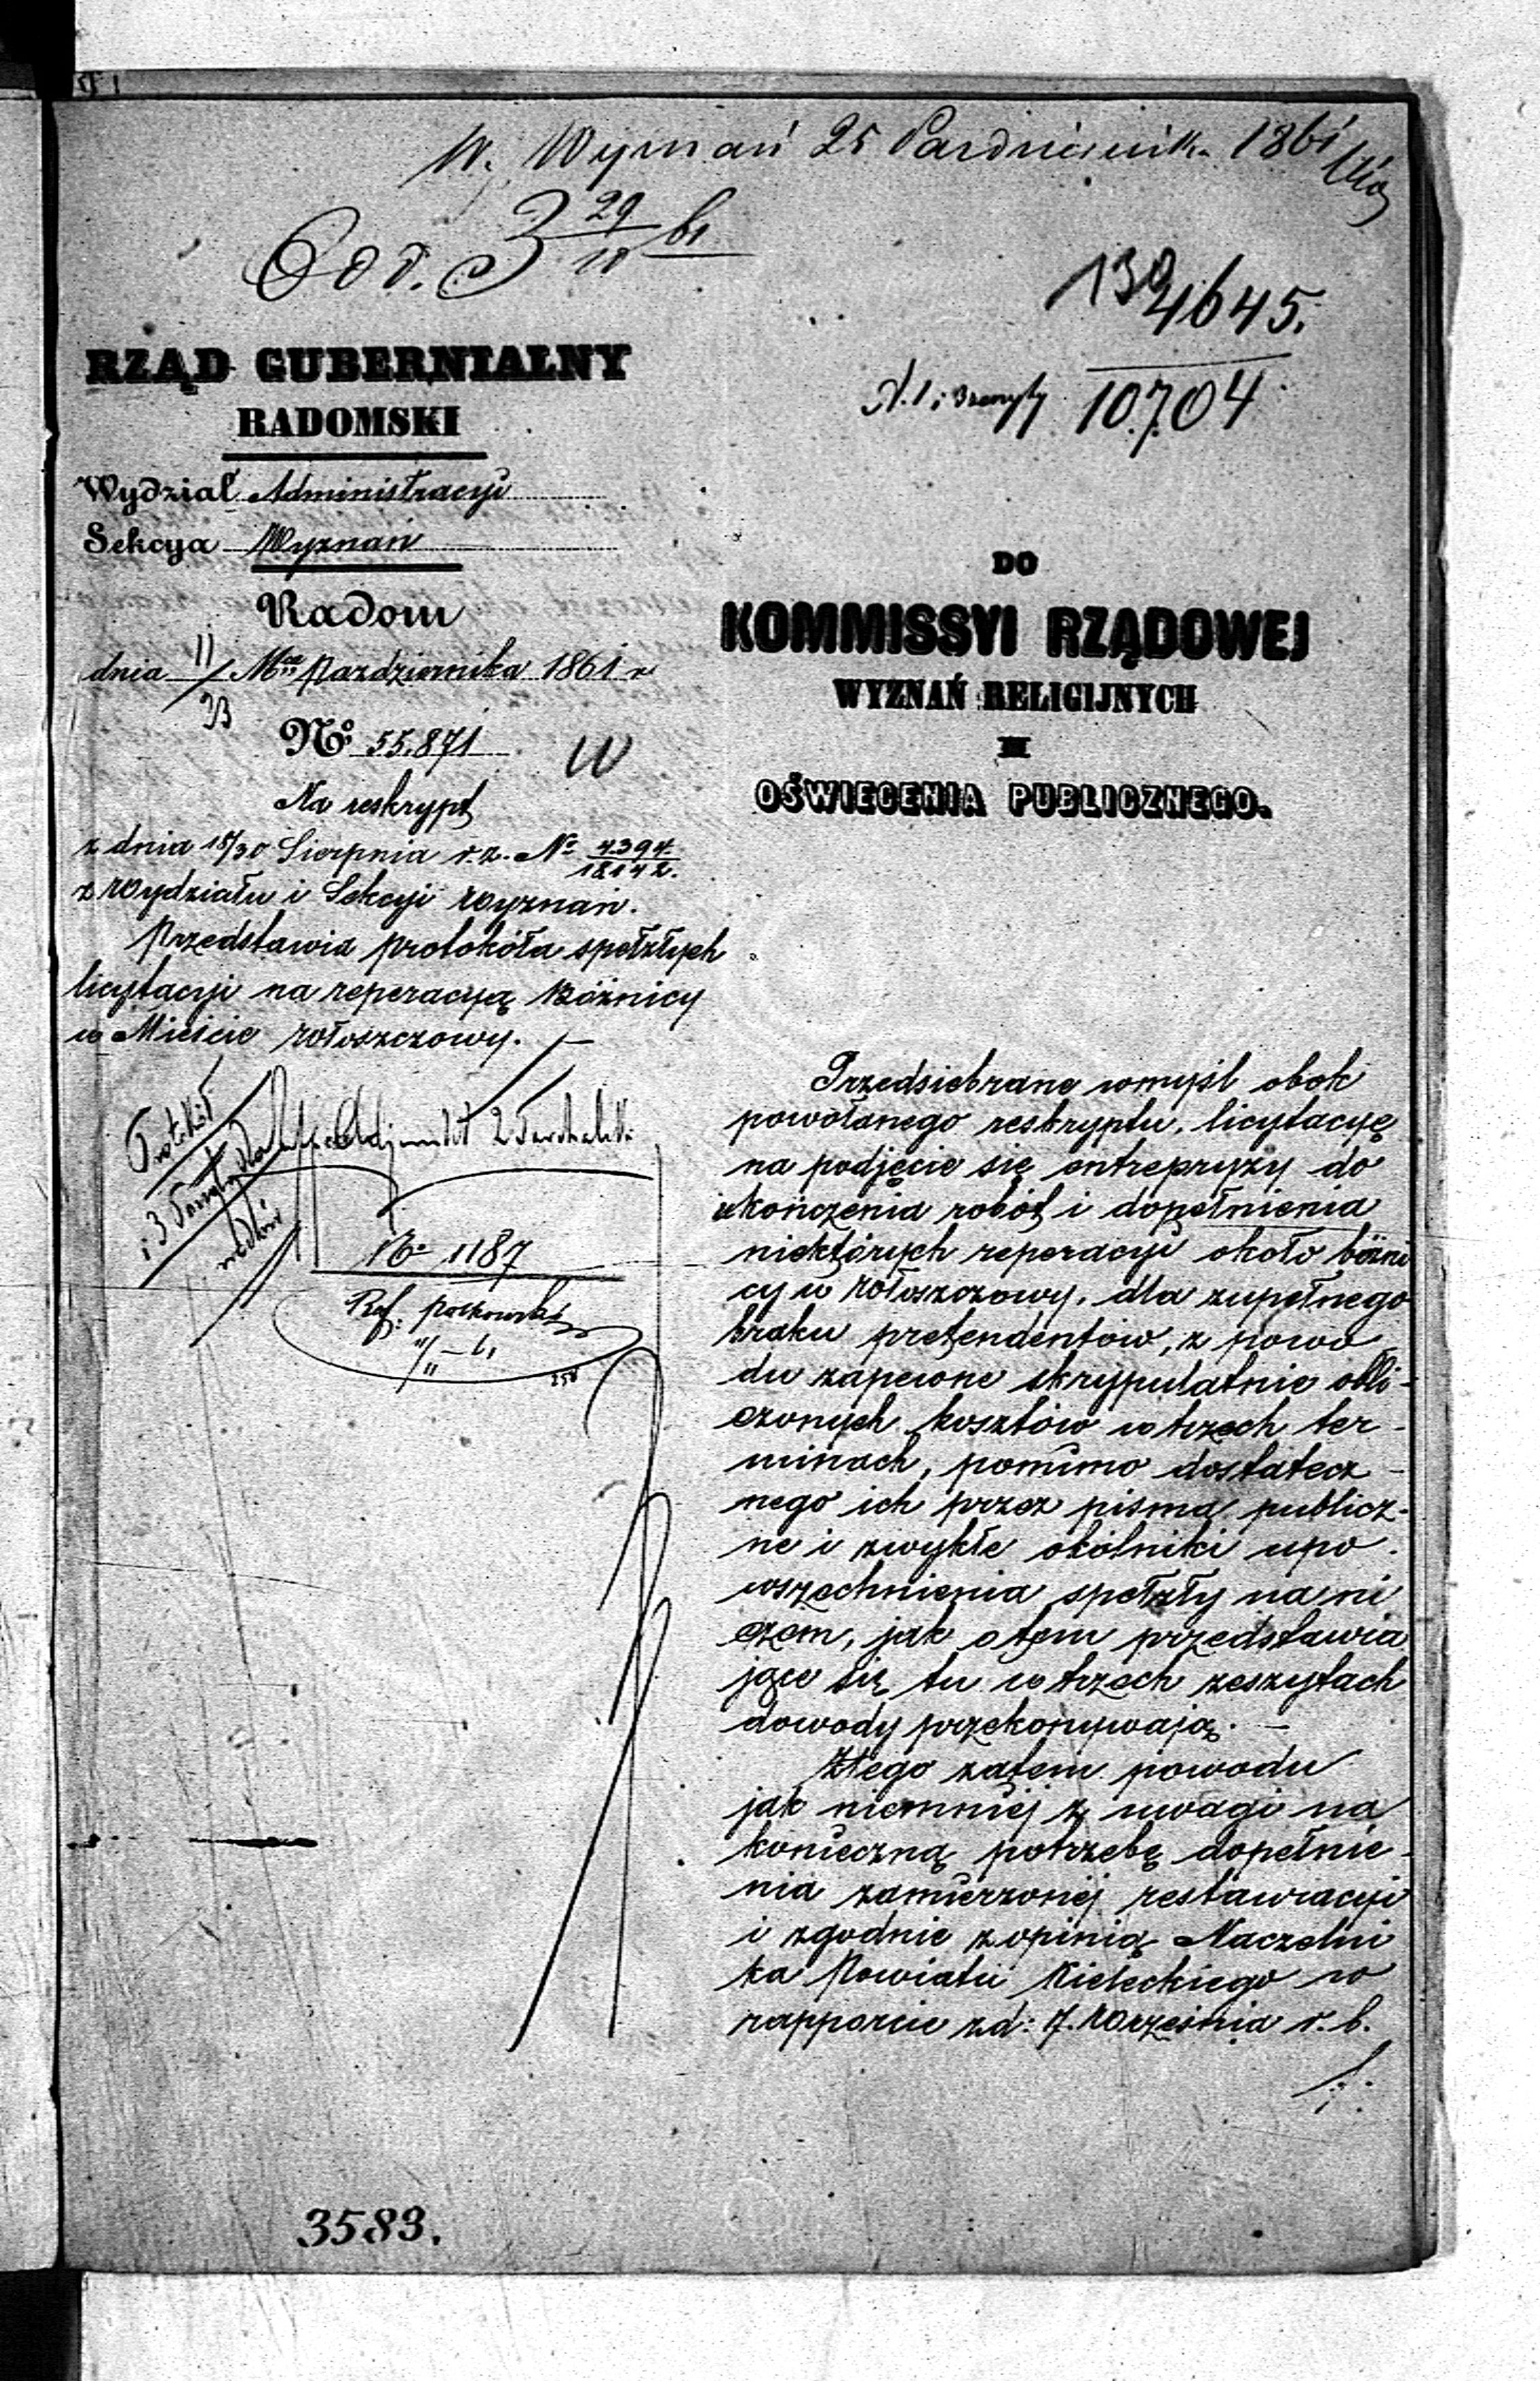 W. Wyznań 25 Październik. 1861
Od. 3 29/10 61
139
4645.
10704
RZĄD GUBERNIALNY
RADOMSKI
Wydział Administracyi
Sekcya Wyznań
Radom
dnia 11/23 Mca Października 1861 r
No 55.871
Na reskrypt
z dnia 18/30 Sierpnia r.z. No 4394./18142.
z Wydziału i Sekcyi Wyznań.
Przedstawia protokóła spełzłych
licytacyi na reperacyą Bóżnicy
w Mieście Włoszczowy.
Protokół
i 3
No 1187
Ref.
DO
KOMMISSYI RZĄDOWEJ
WYZNAŃ RELIGIJNYCH
I
OŚWIECENIA PUBLICZNEGO.
Przedsiebrane wmyśl obok
powołanego reskryptu, licytacyę
na podjęcie się entrepryzy do
ukończenia robót i dopełnienia
niektórych reperacyi około bóżni
cy w Włoszczowy, dla zupełnego
braku pretendentów, z powo
du zapewne skrypulatnie obli-
czonych kosztów w trzech ter-
minach, pomimo dostatecz-
nego ich przez pisma publicz-
ne i zwykłe okólniki upo-
wszechnienia spełzły na ni
czem, jak o tem przedstawia
jące się tu w trzech zeszytach
dowody przekonywają. -
Ztego zatem powodu
jak niemniej z uwagi na
konieczną potrzebę dopełnie-
nia zamierzonej restawracyi
i zgodnie z opinią Naczelni
ka Powiatu Kieleckiego w
rapporcie z d: 7. Września r. b.
3583.